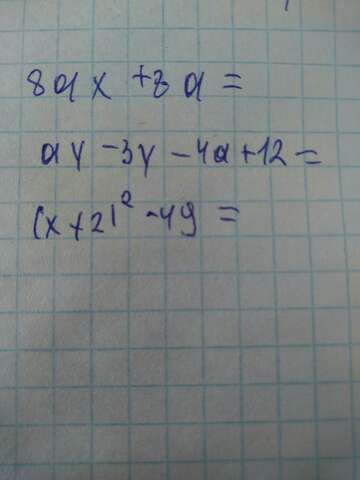 8ax + 8a =
ay - 3y - 4a + 12 =
(x + 2)² - 49 =